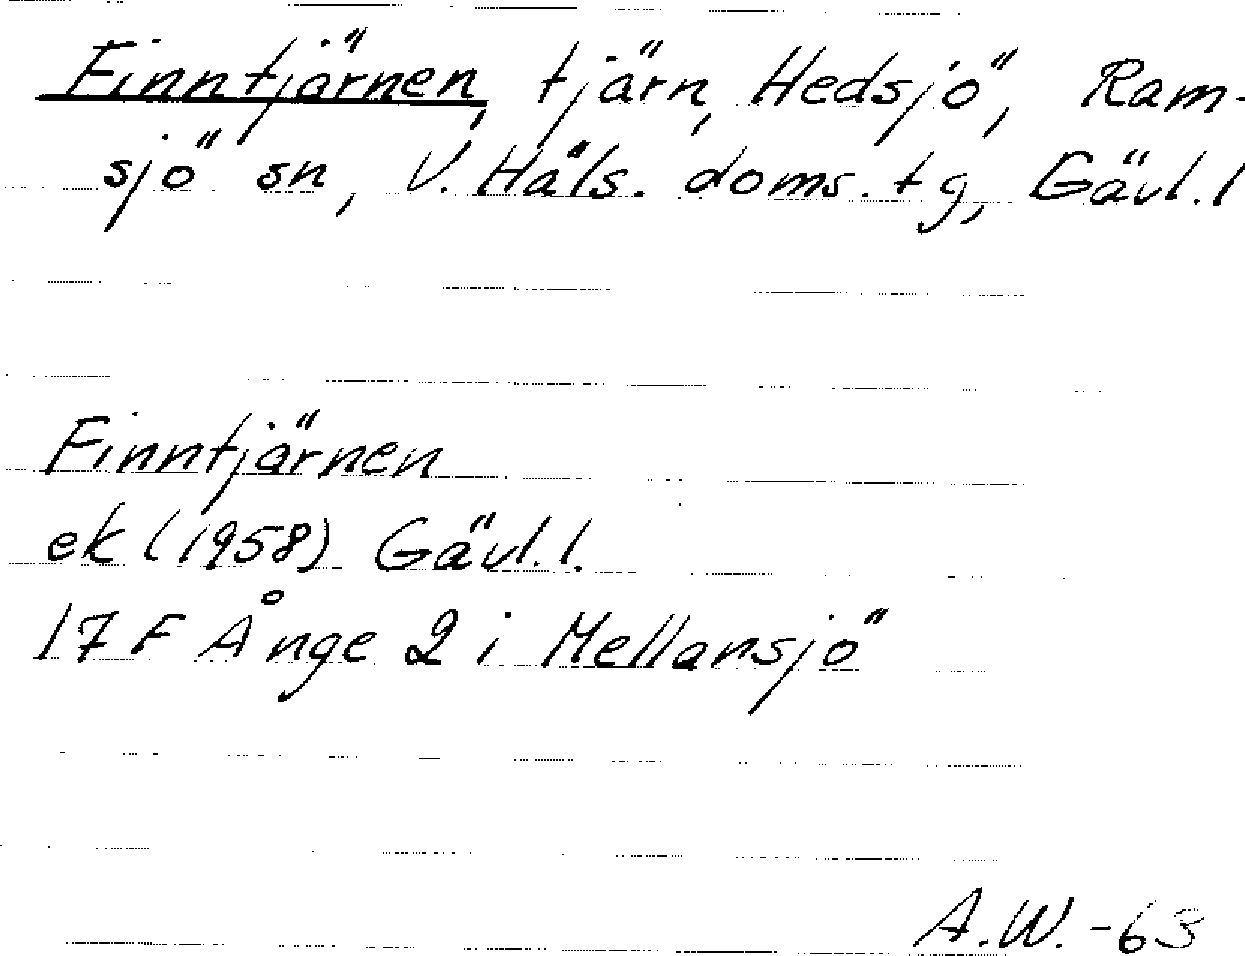 Finntjärnen, tjärn, Hedsjö, Ram-
sjö sn, V. Häls. doms. tg, Gävl. l
Finntjärnen
ek (1958) Gävl. l.
17 F Ånge 2 i Mellansjö
A.W.-63